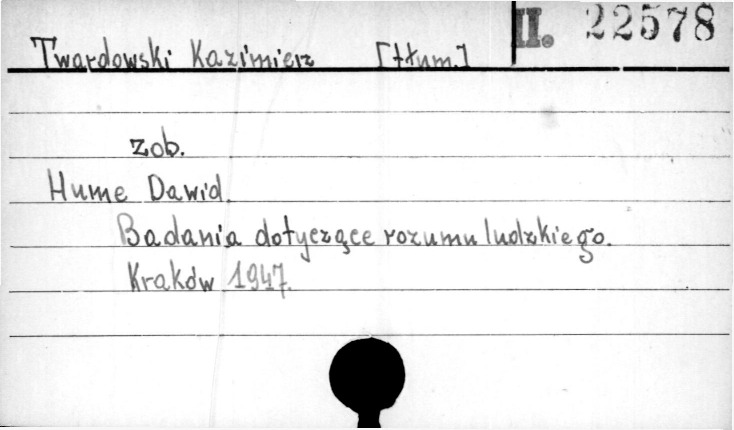 Twardowski Kazimierz [tłum.] II. 22578
zob.
Hume Dawid.
Badania dotyczące rozumu ludzkiego.
Kraków 1947.